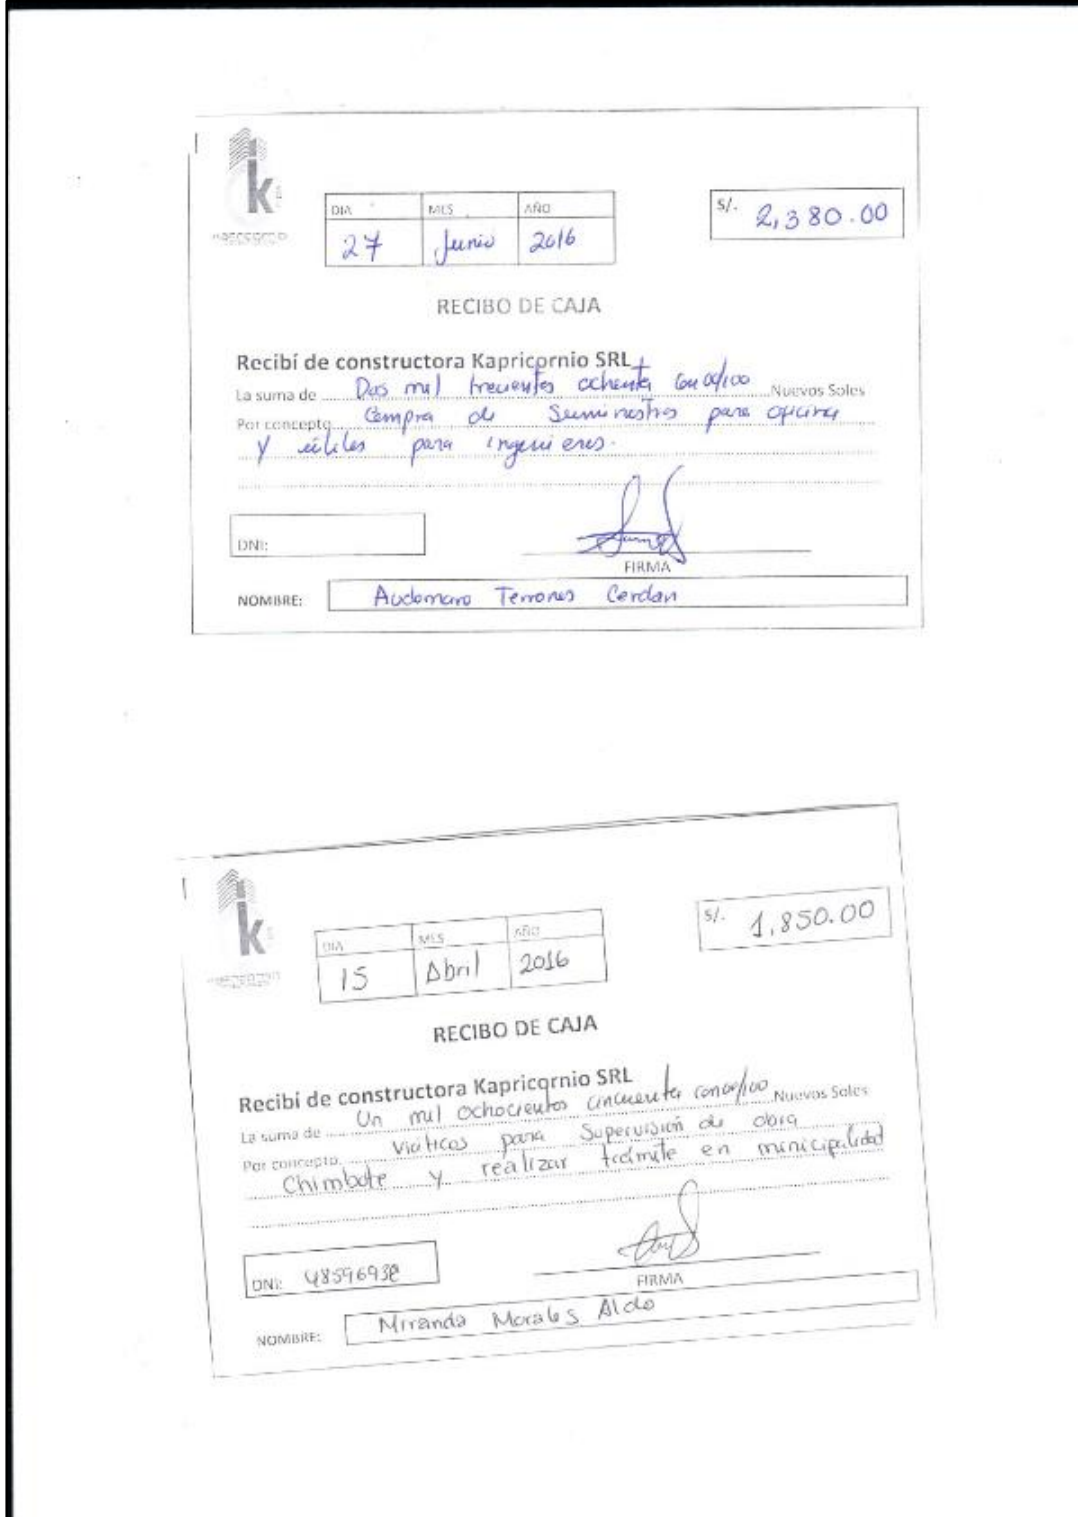 k
DIA MES AÑO
S/. 2,380.00
27 Junio 2016
RECIBO DE CAJA
Recibí de constructora Kapricornio SRL
La suma de Dos mil trecientos ochenta con 00/100 Nuevos Soles
Por concepto Compra de Suministros para oficina
y útiles para ingenieros.
DNI:
FIRMA
NOMBRE: Audomaro Terrones Cerdan
k
S/. 1,850.00
DIA MES AÑO
15 Abril 2016
RECIBO DE CAJA
Recibí de constructora Kapricornio SRL
La suma de Un mil ochocientos cincuenta con 00/100 Nuevos Soles
Por concepto Viáticos para Supervisión de obra
Chimbote y realizar trámite en municipalidad
DNI:
FIRMA
NOMBRE: Miranda Morales Aldo